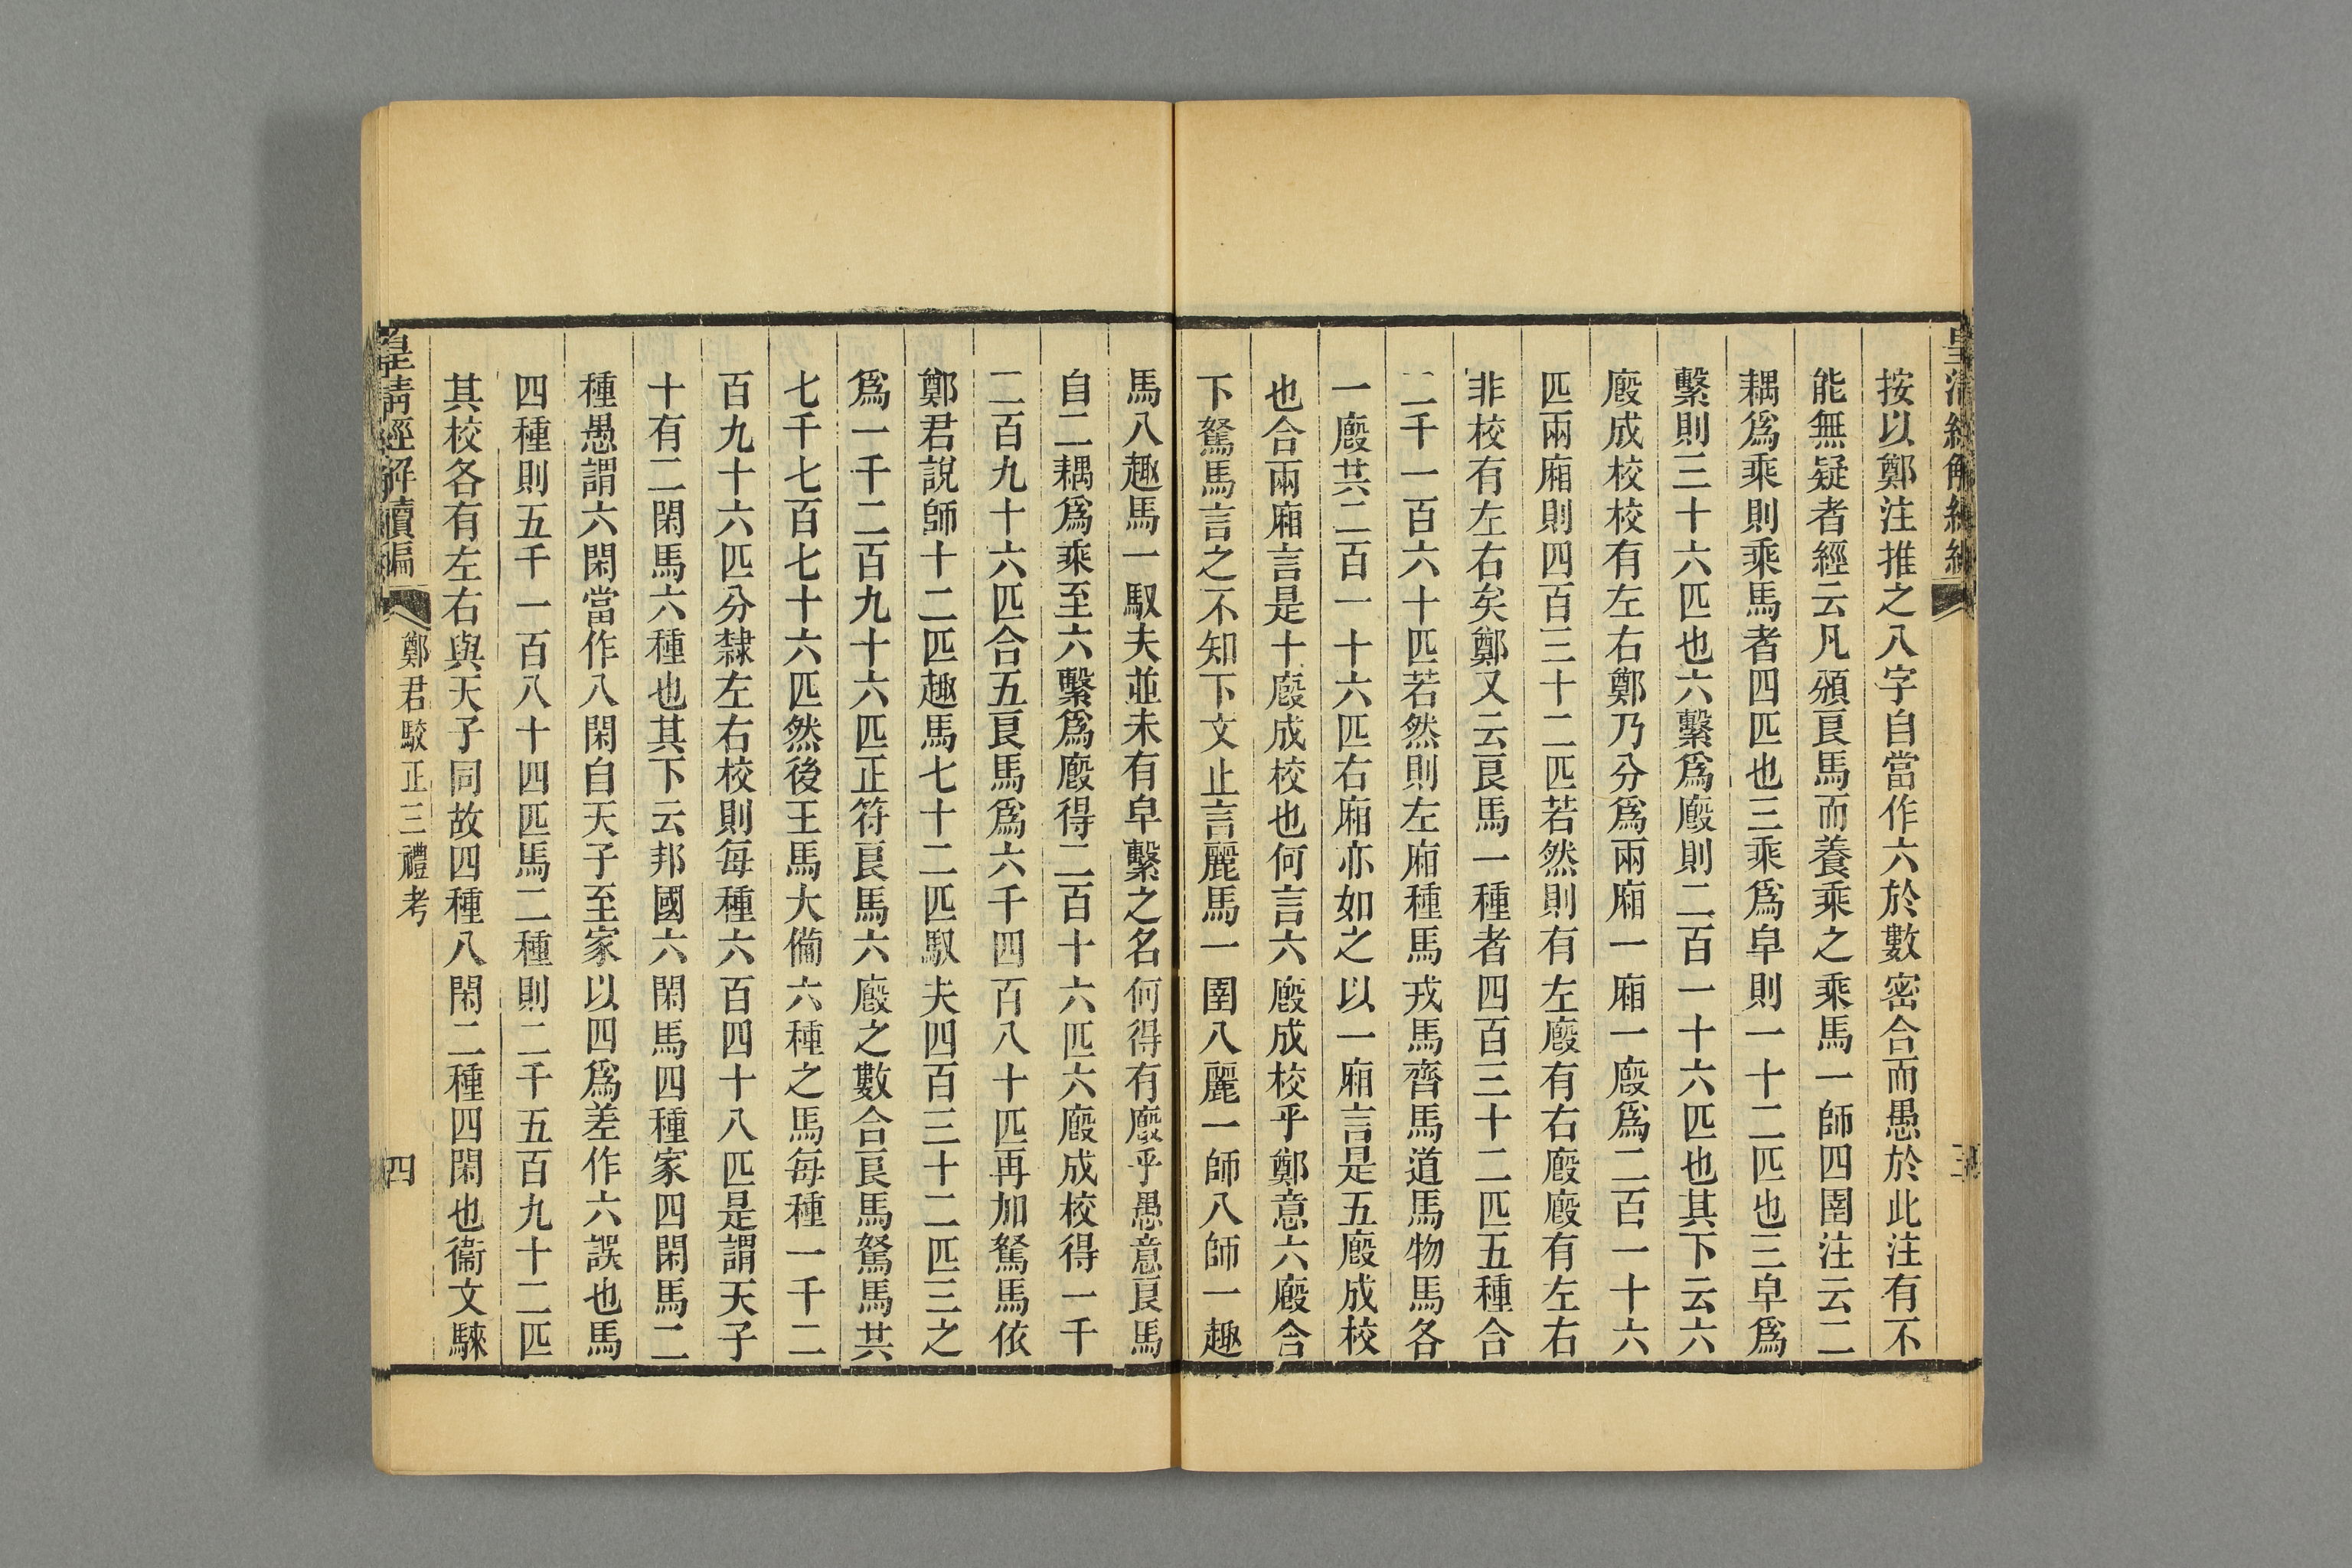 按以鄭注推之八字自當作六於數密合而愚於此注有不
能無疑者經云凡頒良馬而養乘之乘馬一師四圉注云二
耦爲乘則乘馬者四匹也三乘爲皁則一十二匹也三皁爲
繫則三十六匹也六繫爲廄則二百一十六匹也其下云六
廄成校校有左右鄭乃分爲兩廂一廂一廄爲二百一十六
匹兩廂則四百三十二匹若然則有左廄有右廄廄有左右
非校有左右矣鄭又云良馬一種者四百三十二匹五種合
二千一百六十匹若然則左廂種馬戎馬齊馬道馬物馬各
一廄共二百一十六匹右廂亦如之以一廂言是五廄成校
也合兩廂言是十廄成校也何言六廄成校乎鄭意六廄合
下駑馬言之不知下文止言麗馬一圉八麗一師八師一趣
馬八趣馬一馭夫並未有皁繫之名何得有廄乎愚意良馬
自二耦爲乘至六繫爲廄得二百十六匹六廄成校得一千
二百九十六匹合五良馬爲六千四百八十匹再加駑馬依
鄭君說師十二匹趣馬七十二匹馭夫四百三十二匹三之
爲一千二百九十六匹正符良馬六廄之數合良馬駑馬共
七千七百七十六匹然後王馬大備六種之馬每種一千二
百九十六匹分隸左右校則每種六百四十八匹是謂天子
十有二閑馬六種也其下云邦國六閑馬四種家四閑馬二
種愚謂六閑當作八閑自天子至家以四爲差作六誤也馬
四種則五千一百八十四匹馬二種則二千五百九十二匹
其校各有左右與天子同故四種八閑二種四閑也衞文騋
皇清經解續編
鄭君駮正三禮考
四